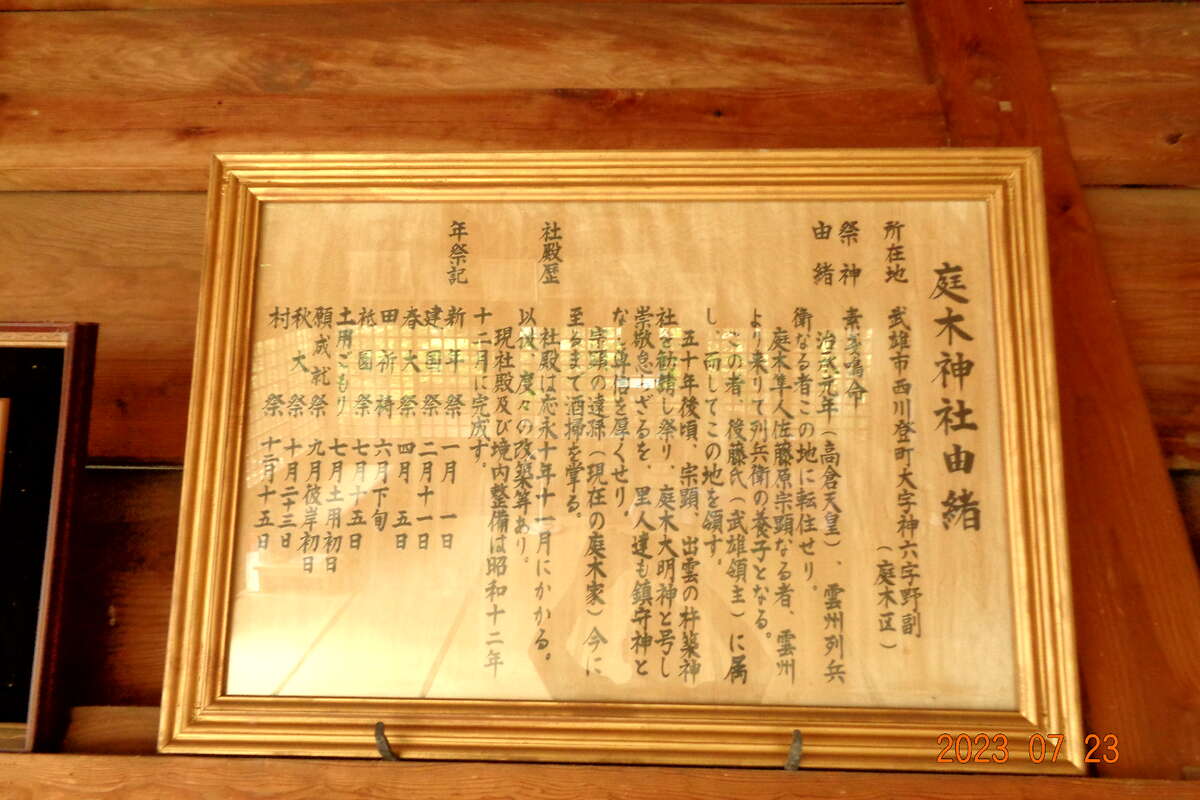 庭木神社由緒
所在地 武雄市西川登町大字神六字野副
(庭木区)
祭神 素盞鳴命
由緒 治承元年(高倉天皇)、雲州列兵
衛なる者この地に転住せり。
庭木隼人佐藤原宗顕なる者、雲州
より来りて列兵衛の養子となる。
この者、後藤氏(武雄領主)に属
し、而してこの地を領す。
五十年後頃、宗顕、出雲の杵築神
社を勧請し祭り、庭木大明神と号し
崇敬怠らざるを、里人達も鎮守神と
なし尊信を厚くせり。
宗顕の遠孫(現在の庭木家)今に
至るまで酒掃を掌る。
社殿歴 社殿は応永十年十一月にかかる。
以後、度々の改築等あり。
現社殿及び境内整備は昭和十二年
十二月に完成す。
年祭記 新年祭 一月一日
建国祭 二月十一日
春大祭 四月五日
田祈祷 六月下旬
祇園祭 七月十五日
土用ごもり 七月土用初日
願成就祭 九月彼岸初日
秋大祭 十月二十三日
村祭 十二月十五日
2023 07 23